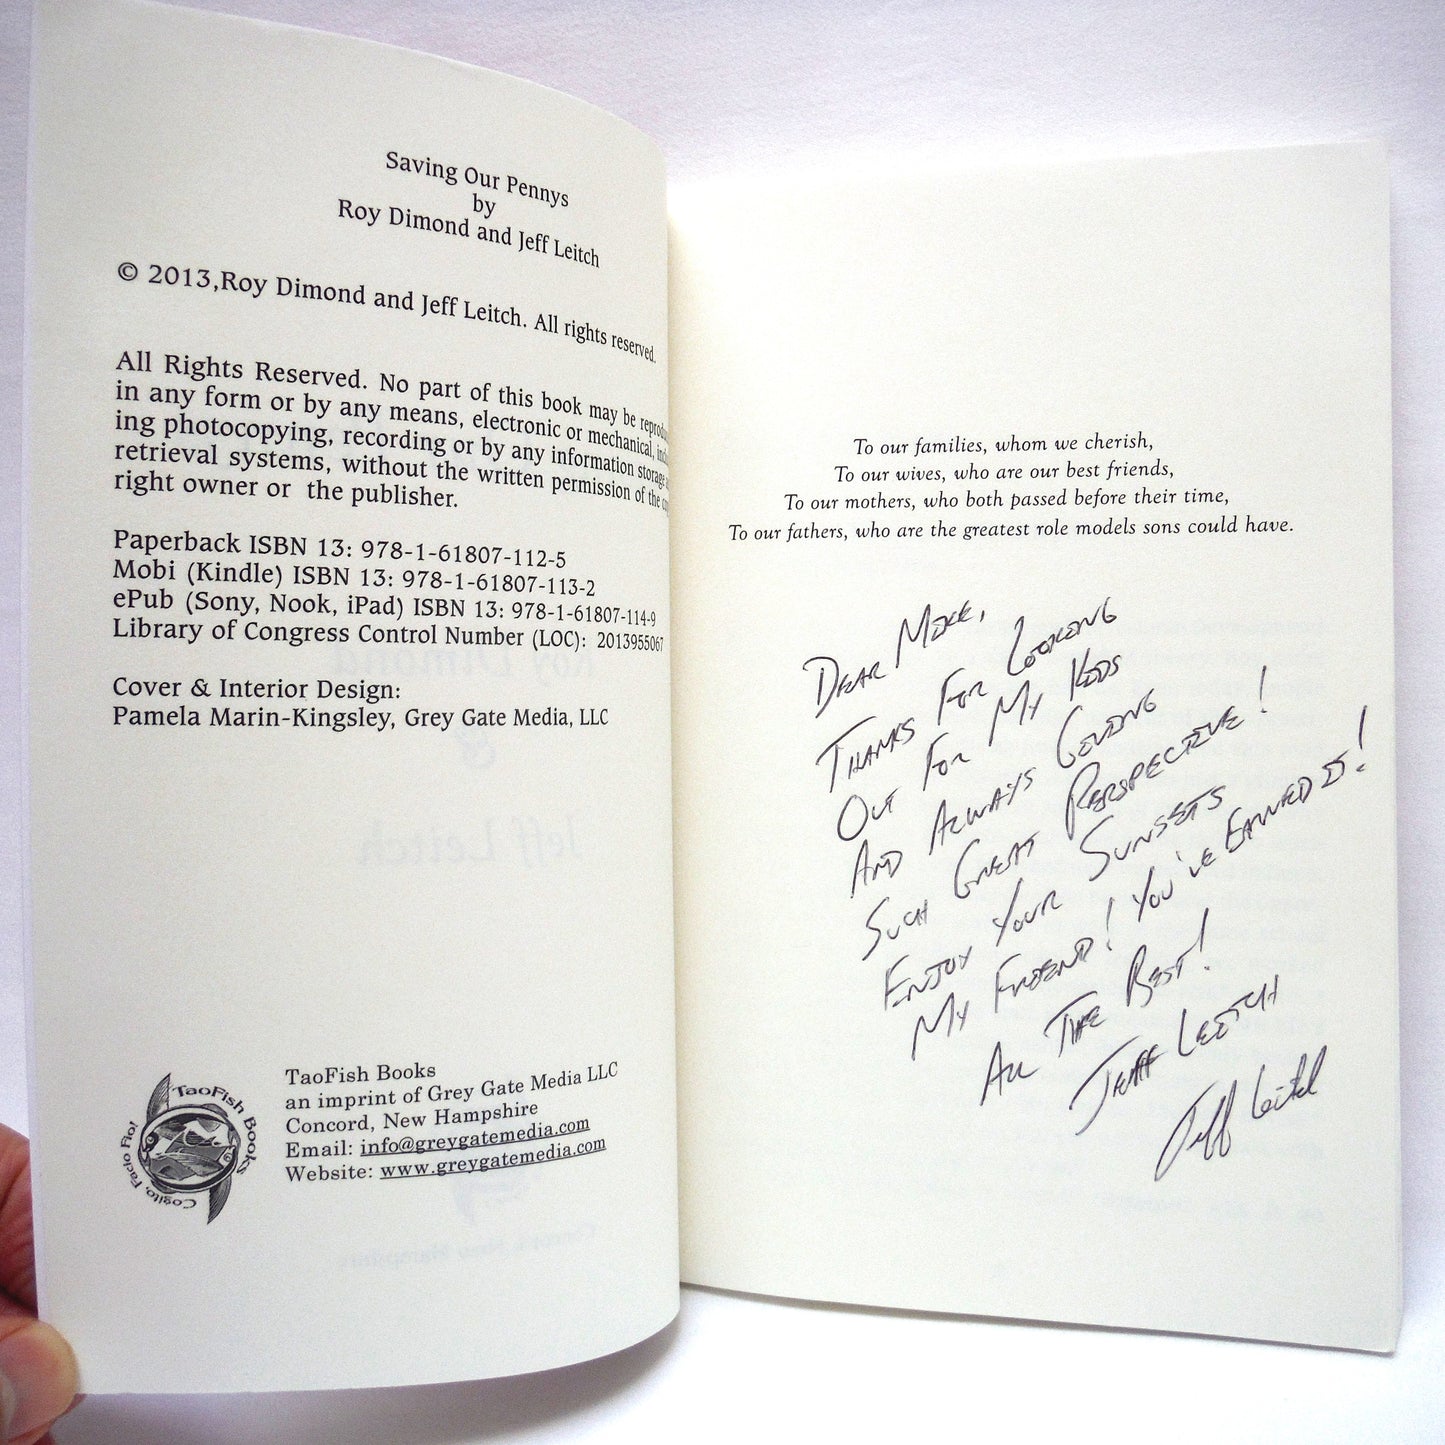 Saving Our Pennys
by
Roy Dimond and Jeff Leitch
© 2013,Roy Dimond and Jeff Leitch. All rights reserved.
All Rights Reserved. No part of this book may be
in any form or by any means, electronic or mechanical,
ing photocopying, recording or by any information storage
retrieval systems, without the written permission of the
right owner or the publisher.
Paperback ISBN 13: 978-1-61807-112-5
Mobi (Kindle) ISBN 13: 978-1-61807-113-2
ePub (Sony, Nook, iPad) ISBN 13: 978-1-61807-114-9
Library of Congress Control Number (LOC): 2013955067
Cover & Interior Design:
Pamela Marin-Kingsley, Grey Gate Media, LLC
TaoFish Books
Cogito, Facto Fio!
TaoFish Books
an imprint of Grey Gate Media LLC
Concord, New Hampshire
Email: info@greygatemedia.com
Website: www.greygatemedia.com
To our families, whom we cherish,
To our wives, who are our best friends,
To our mothers, who both passed before their time,
To our fathers, who are the greatest role models sons could have.
DEAR MIKE,
THANKS FOR LOOKING
OUT FOR MY KIDS
AND ALWAYS GIVING
SUCH GREAT PERSPECTIVE!
ENJOY YOUR SUNSETS
MY FRIEND! YOU'VE EARNED IT!
ALL THE BEST!
JEFF LEITCH
Jeff Leitch